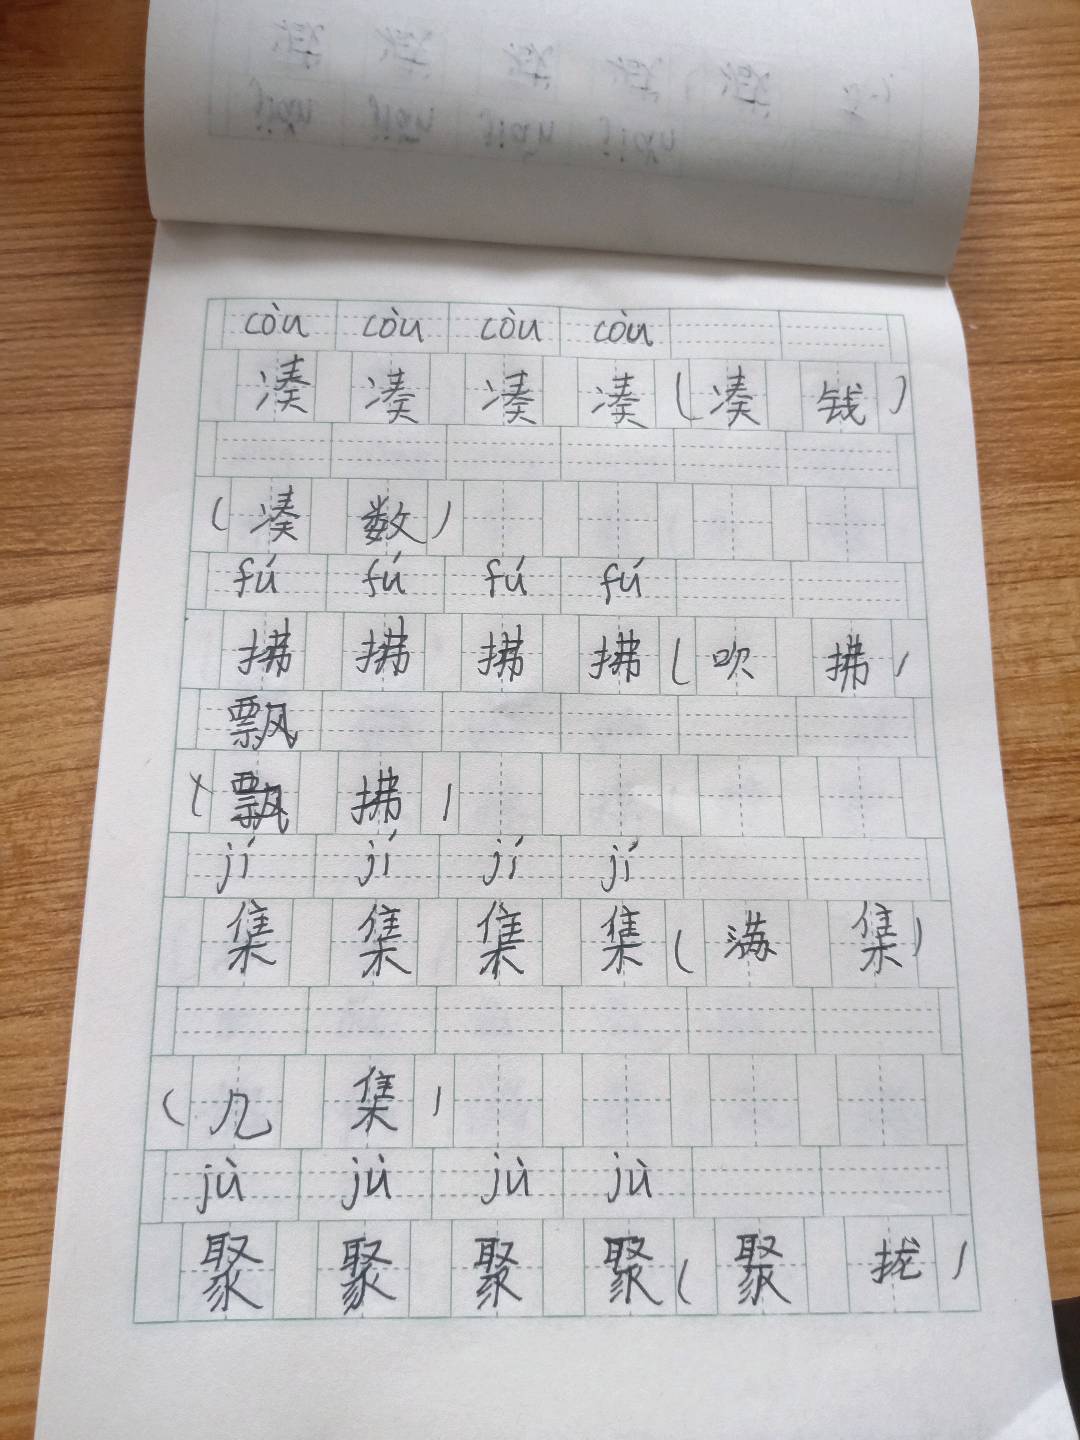 còu còu còu còu
凑 凑 凑 凑 (凑 钱)
(凑 数)
fú fú fú fú
拂 拂 拂 拂 (吹 拂)
飘
(飘 拂)
jí jí jí jí
集 集 集 集 (满 集)
(几 集)
jù jù jù jù
聚 聚 聚 聚 (聚 拢)